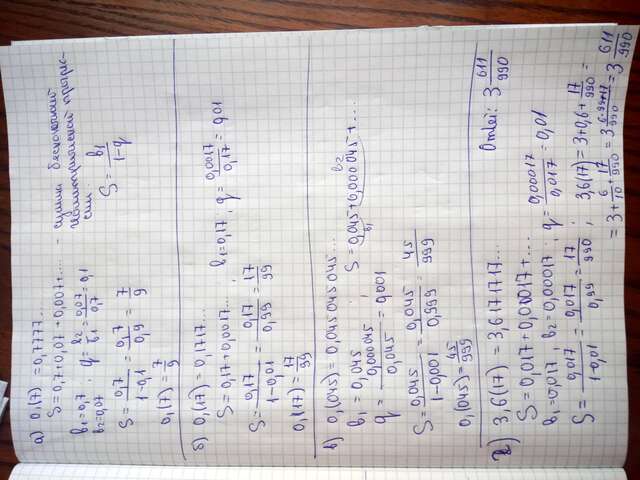 а) 0,(7) = 0,7777...
S = 0,7 + 0,07 + 0,007 + .... - сумма бесконечной
геометрической прогрес-
сии.
b₁ = 0,7 ; q = b₂/b₁ = 0,07/0,7 = 0,1
b₂ = 0,07
S = b₁/1-q
S = 0,7/1-0,1 = 0,7/0,9 = 7/9
0,(7) = 7/9
б) 0,(17) = 0,1717...
S = 0,17 + 0,0017... b₁ = 0,17 ; q = 0,0017/0,17 = 0,01
S = 0,17/1-0,01 = 0,17/0,99 = 17/99
0,(17) = 17/99
в) 0,(045) = 0,045 045 045...
b₁ = 0,045 S = 0,045 + 0,000 045 + ...
b₁ b₂
q = 0,000045/0,045 = 0,001
S = 0,045/1-0,001 = 0,045/0,999 = 45/999
0,(045) = 45/999
г) 3,6(17) = 3,6 17 17 17... Ответ: 3 611/990
S = 0,017 + 0,00017 + ...
b₁ = 0,017 b₂ = 0,00017 ; q = 0,00017/0,017 = 0,01
S = 0,017/1-0,01 = 0,017/0,99 = 17/990 ; 3,6(17) = 3 + 0,6 + 17/990 =
= 3 + 6/10 + 17/990 = 3 6·99+17/990 = 3 611/990